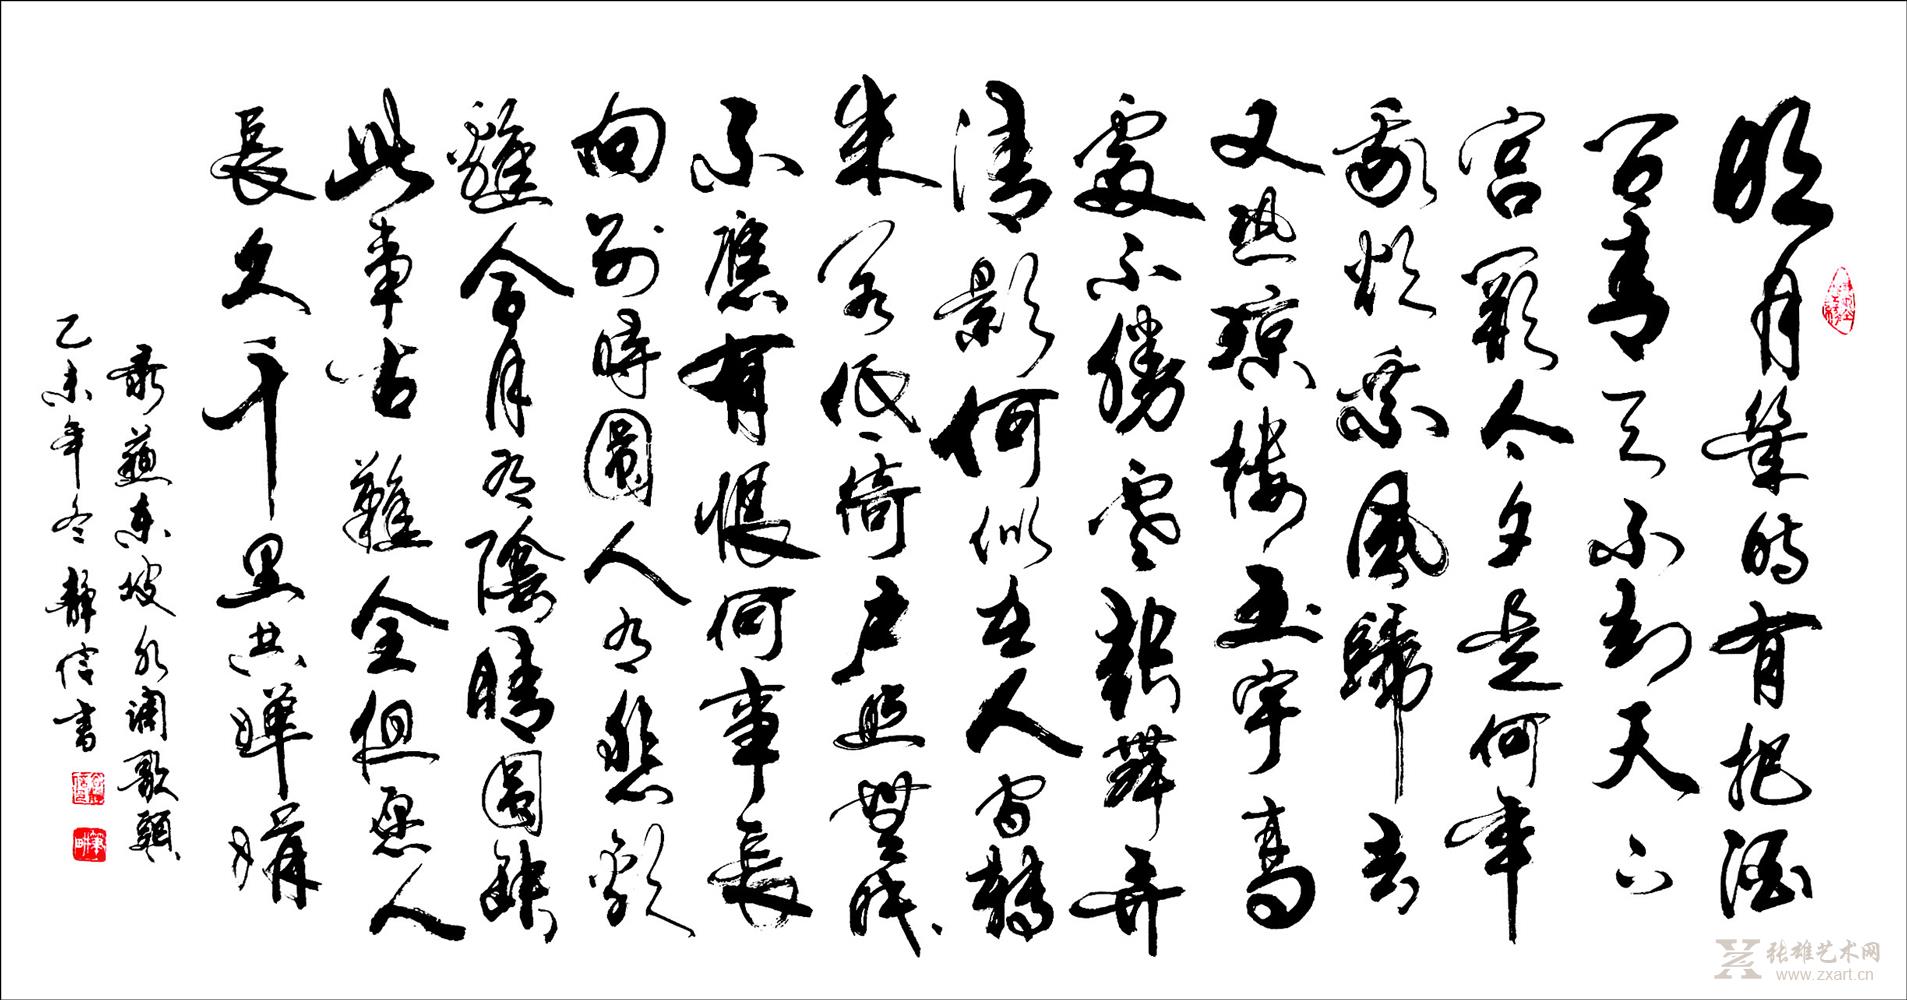 明月幾时有把酒
问青天不知天上
宫阙今夕是何年
我欲乘風歸去
又恐琼楼玉宇高
處不勝寒起舞弄
清影何似在人间轉
朱阁低绮户照無眠
不應有恨何事長
向别時圓人有悲歡
離合月有陰晴圓缺
此事古難全但愿人
長久千里共嬋娟
录蘇东坡水调歌頭
乙未年冬静信书
张雄艺术网
www.zxart.cn